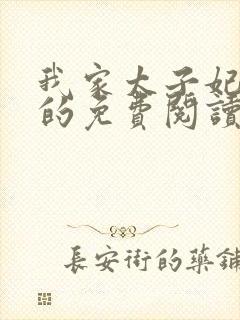 我家太子妃
的免費閱讀
長安街的藥鋪